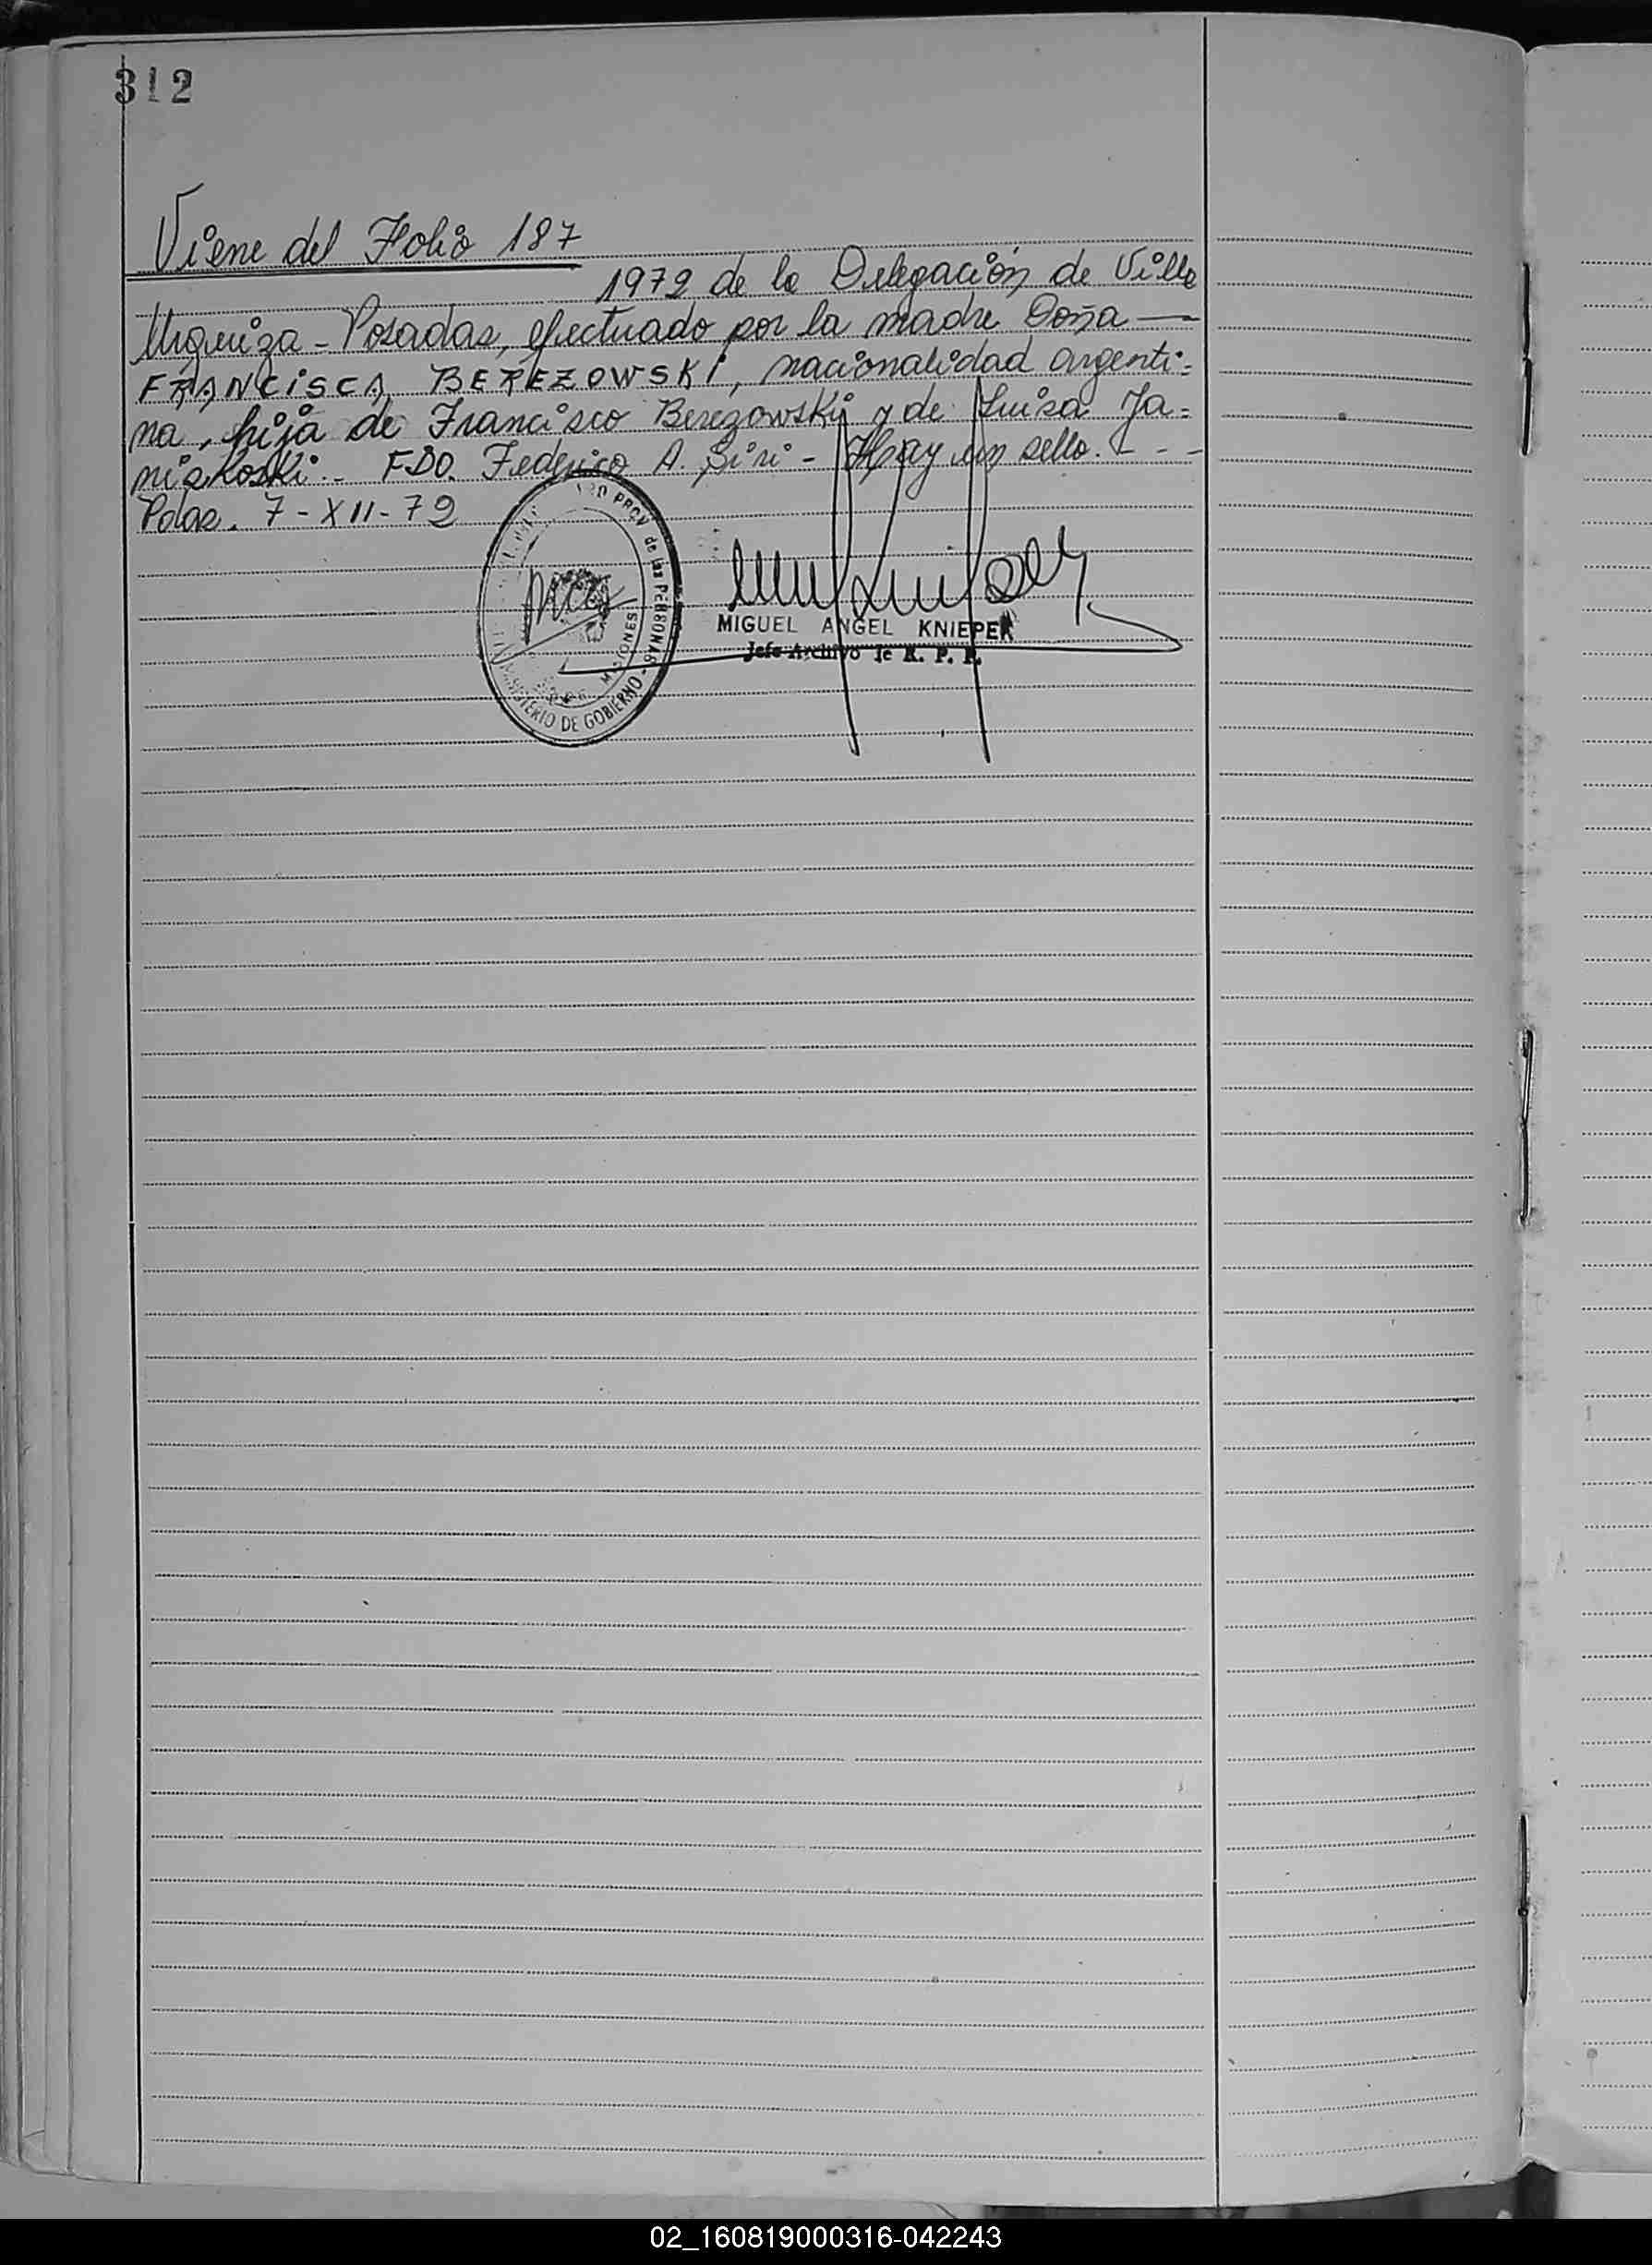 312
Viene del Folio 187
1972 de la Delegación de Villa
Urquiza - Posadas, efectuado por la madre Doña —
FRANCISCA BEREZOWSKI, nacionalidad argenti=
na, hija de Francisco Berezowski y de Luisa Ja=
niskoski.- FDO. Federico A. Siri - Hay un sello. - - -
Pdas. 7-XII-72
PROV. de las PERSONAS - MINISTERIO DE GOBIERNO
MISIONES
MIGUEL ANGEL KNIEPER
Jefe Archivo de R. P. P.
02_160819000316-042243